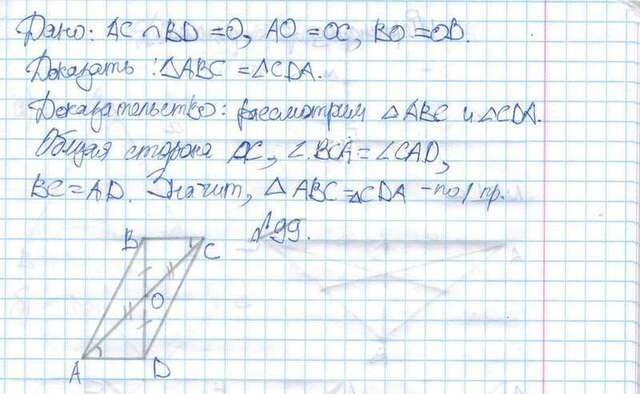 Дано: AC ∩ BD = O, AO = OC, BO = OD.
Доказать: △ABC = △CDA.
Доказательство: рассмотрим △ABC и △CDA.
Общая сторона AC, ∠BCA = ∠CAD,
BC = AD. Значит, △ABC = △CDA – по I пр.
№99.
B
C
O
A
D